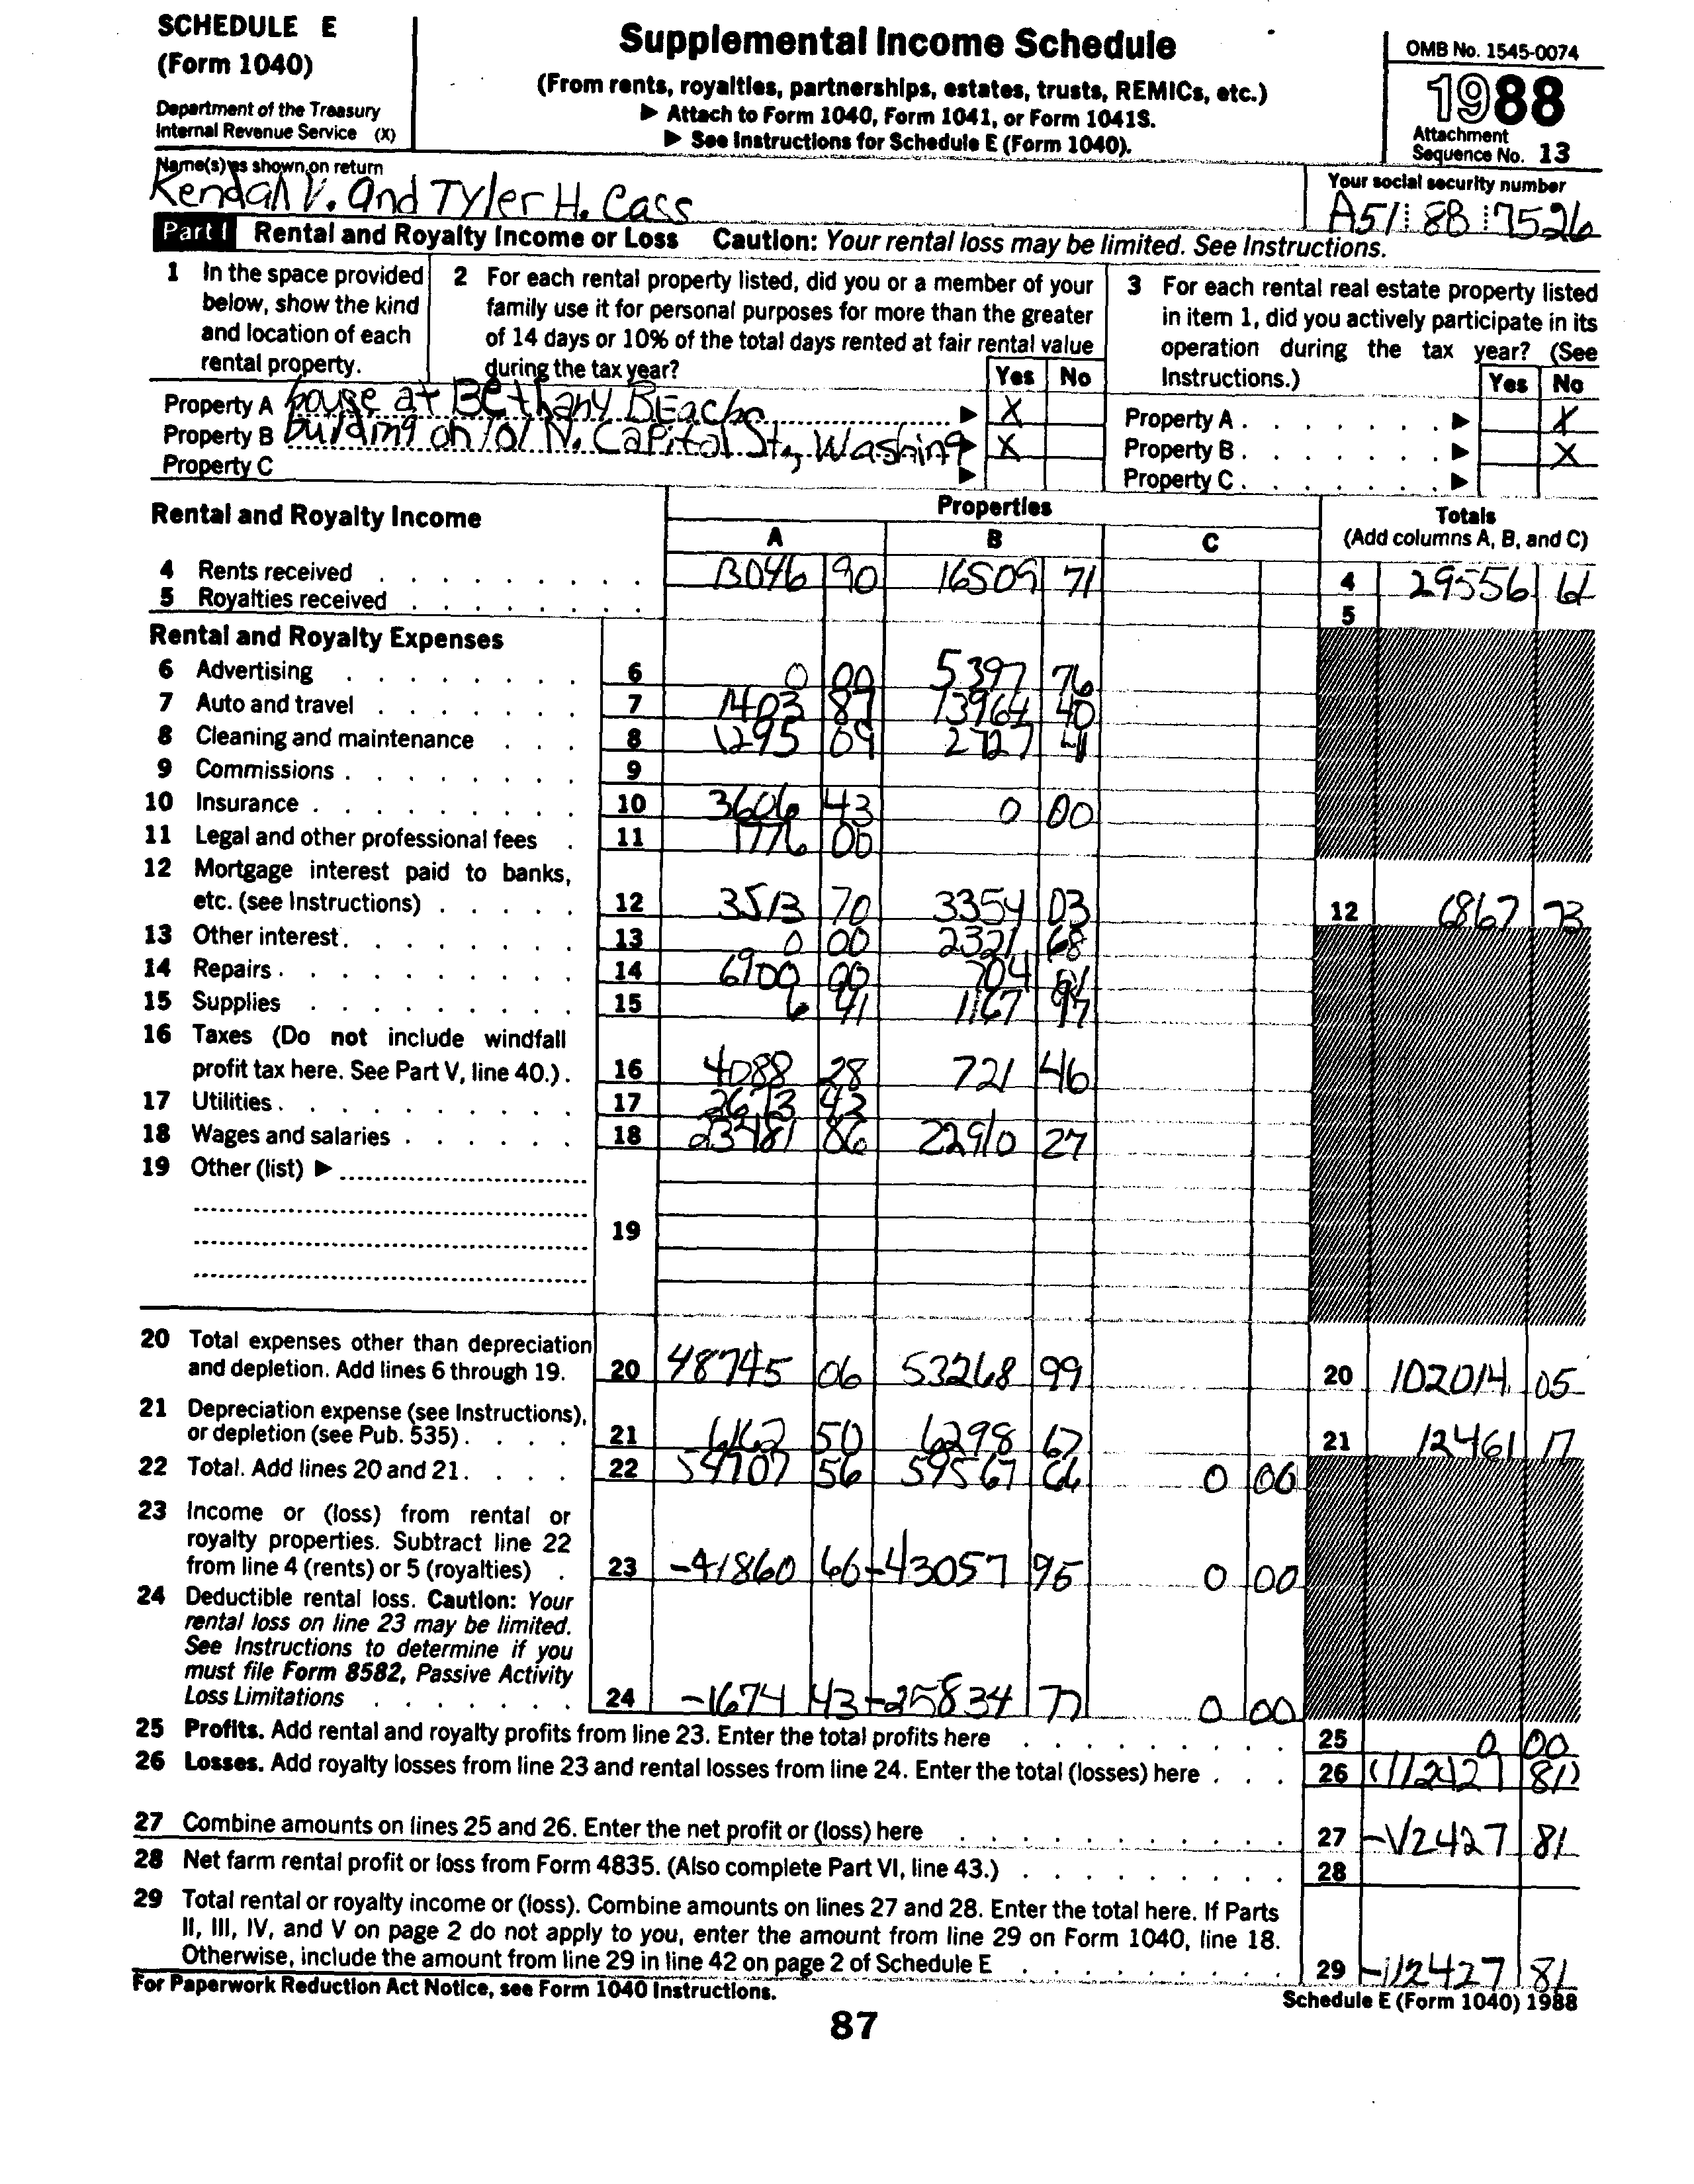 SCHEDULE E
(Form 1040)
Department of the Treasury
Internal Revenue Service (X)
Supplemental Income Schedule
(From rents, royalties, partnerships, estates, trusts, REMICs, etc.)
▶ Attach to Form 1040, Form 1041, or Form 1041S.
▶ See Instructions for Schedule E (Form 1040).
OMB No. 1545-0074
1988
Attachment
Sequence No. 13
Name(s) as shown on return
Kendall V. and Tyler H. Cass
Your social security number
A51 8B 7526
Part I Rental and Royalty Income or Loss Caution: Your rental loss may be limited. See Instructions.
1 In the space provided
below, show the kind
and location of each
rental property.
2 For each rental property listed, did you or a member of your
family use it for personal purposes for more than the greater
of 14 days or 10% of the total days rented at fair rental value
during the tax year?
Yes No
3 For each rental real estate property listed
in item 1, did you actively participate in its
operation during the tax year? (See
Instructions.)
Yes No
Property A house at Bethany Beach ▶ X
Property A ▶ X
Property B building on 101 N. Capitol St., Washing ▶ X
Property B ▶ X
Property C ▶
Property C ▶
Rental and Royalty Income
Properties
A B C
Totals
(Add columns A, B, and C)
4 Rents received 13046 90 16509 71 4 29556 61
5 Royalties received 5
Rental and Royalty Expenses
6 Advertising 6 0 00 5397 76
7 Auto and travel 7 1403 87 13964 40
8 Cleaning and maintenance 8 1295 09 2727 41
9 Commissions 9
10 Insurance 10 3606 43 0 00
11 Legal and other professional fees 11 1776 00
12 Mortgage interest paid to banks,
etc. (see Instructions) 12 3513 70 3354 03 12 6867 73
13 Other interest 13 0 00 2321 68
14 Repairs 14 6900 00 704
15 Supplies 15 6 41 1167 97
16 Taxes (Do not include windfall
profit tax here. See Part V, line 40.) 16 4088 28 721 46
17 Utilities 17 2673 42
18 Wages and salaries 18 23481 86 22910 27
19 Other (list) ▶
19
20 Total expenses other than depreciation
and depletion. Add lines 6 through 19. 20 48745 06 53268 99 20 102014 05
21 Depreciation expense (see Instructions),
or depletion (see Pub. 535) 21 6162 50 6298 67 21 12461 17
22 Total. Add lines 20 and 21. 22 54907 56 59567 66 0 00
23 Income or (loss) from rental or
royalty properties. Subtract line 22
from line 4 (rents) or 5 (royalties) 23 -41860 66 -43057 95 0 00
24 Deductible rental loss. Caution: Your
rental loss on line 23 may be limited.
See Instructions to determine if you
must file Form 8582, Passive Activity
Loss Limitations 24 -1674 43 -25834 77 0 00
25 Profits. Add rental and royalty profits from line 23. Enter the total profits here 25 0 00
26 Losses. Add royalty losses from line 23 and rental losses from line 24. Enter the total (losses) here 26 (112427 81)
27 Combine amounts on lines 25 and 26. Enter the net profit or (loss) here 27 -112427 81
28 Net farm rental profit or loss from Form 4835. (Also complete Part VI, line 43.) 28
29 Total rental or royalty income or (loss). Combine amounts on lines 27 and 28. Enter the total here. If Parts
II, III, IV, and V on page 2 do not apply to you, enter the amount from line 29 on Form 1040, line 18.
Otherwise, include the amount from line 29 in line 42 on page 2 of Schedule E 29 -112427 81
For Paperwork Reduction Act Notice, see Form 1040 Instructions.
Schedule E (Form 1040) 1988
87